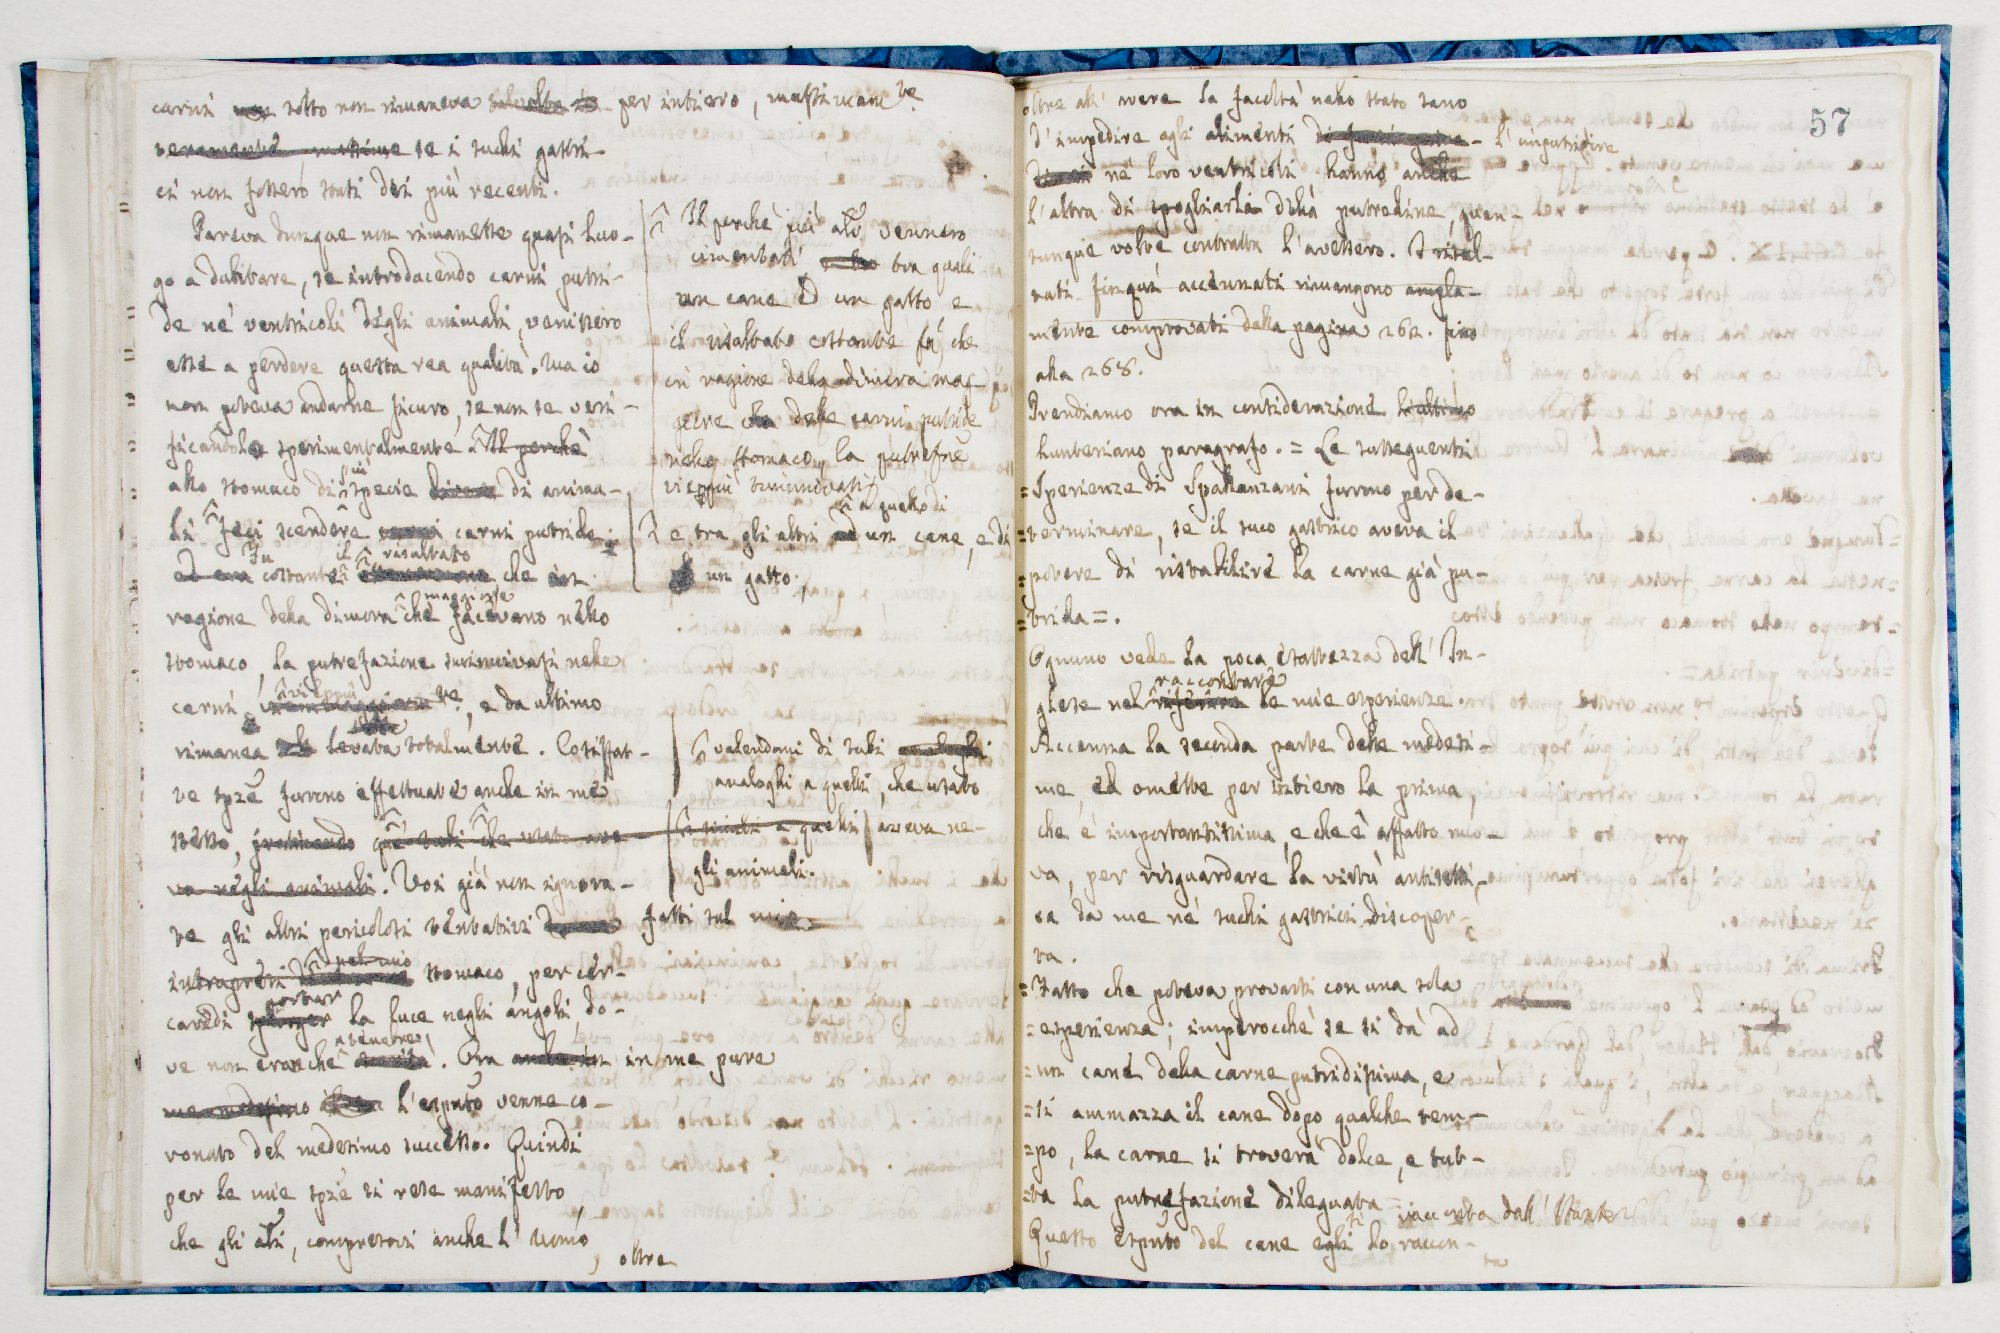 carni non sotto non rimaneva talvolta per intiero, massimam.te
veramente, massime se i suchi gastri-
ci non fossero stati dei più recenti.
Pareva dunque non rimanesse quasi luo-
go a dubitare, se introducendo carni putri-
de ne' ventricoli degli animali, venissero
esse a perdere questa rea qualità. Ma io
non poteva andarne sicuro, se non se veri-
ficandolo sperimentalmente. Il perchè
allo stomaco di più specie diverse di anima-
li feci scendere carni putride
Fu il risultato
ed era costante che in
ragione della dimora maggiore che facevano nello
stomaco, la putrefazione sminuivasi nelle
carni vieppiù, e da ultimo
rimanea levata totalmente. Così fat-
te spze furono effettuate anche in me
stesso, inghiottendo que' tubi che usato ave-
va negli animali. Voi già non ignora-
te gli altri pericolosi tentativi fatti sul mio
intrapresi nel mio stomaco, per cer-
care di portar la luce negli angoli do-
ve non eran che tenebre. Ora anche in in me pure
me medesimo l'espmto venne co-
ronato del medesimo successo. Quindi
per le mie spze si rese manifesto,
che gli ali, compresovi anche l'Uomo,
oltre
Il perchè più ali vennero
cimentati, tra quali
un cane ed un gatto e
il risultato costante fù che
in ragione della dimora mag-
giore delle carni putride
nello stomaco, la putrefne
vieppiù sminuivasi
a quello di
e tra gli altri ad un cane, e di
un gatto.
valendomi di tubi analoghi
analoghi a quelli, che usato
simili a quelli aveva ne-
gli animali.
57
oltre all'avere la facoltà nello stato sano
d'impedire agli alimenti l'imputridire
ne' loro ventricoli hanno anche
l'altra di spogliarli della putredine, quan-
tunque volte contratta l'avessero. I risul-
tati finquì accennati rimangono ampla-
mente comprovati dalla pagina 262. fino
alla 268.
Prendiamo ora in considerazione l'ultimo
hunteriano paragrafo. = Le susseguenti
= Sperienze di Spallanzani furono per de-
= terminare, se il suco gastrico aveva il
= potere di ristabilire la carne già pu-
= trida =.
Ognuno vede la poca esattezza dell'In-
glese nel raccontare le mie esperienze.
Accenna la seconda parte delle medesi-
me, ed omette per intiero la prima,
che è importantissima, e che è affatto nuo-
va, per risguardare la virtù antisetti-
ca da me ne' suchi gastrici discoper-
ta.
= Fatto che poteva provarsi con una sola
= esperienza; imperocchè se si dà ad
= un cane della carne putridissima, e
= si ammazza il cane dopo qualche tem-
= po, la carne si troverà dolce, e tut-
= ta la putrefazione dileguata =
Questo Espmto del cane egli lo raccon-
ta